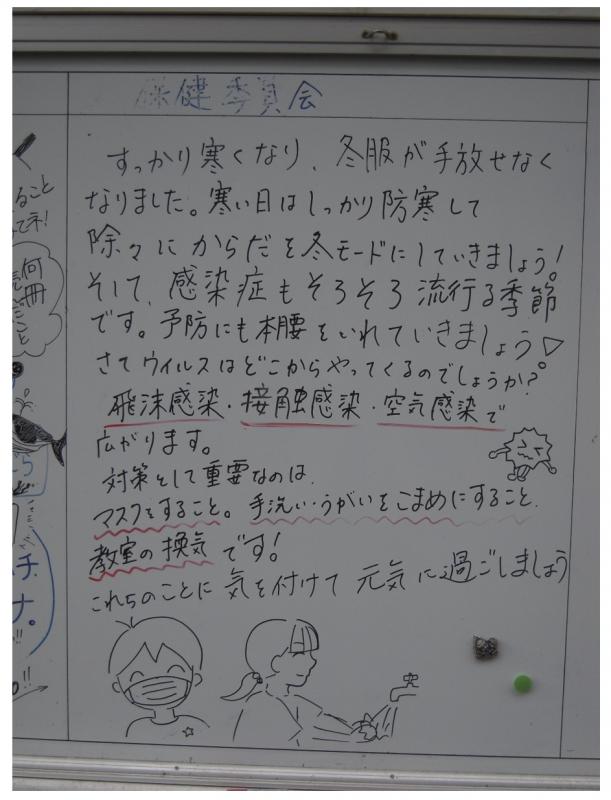 保健委員会
すっかり寒くなり、冬服が手放せなく
なりました。寒い日はしっかり防寒して
除々にからだを冬モードにしていきましょう!
そして、感染症もそろそろ流行る季節
です。予防にも本腰をいれていきましょう
さてウイルスはどこからやってくるのでしょうか?
飛沫感染・接触感染・空気感染で
広がります。
対策として重要なのは、
マスクをすること。手洗い・うがいをこまめにすること、
教室の換気です!
これらのことに気を付けて元気に過ごしましょう
ること
何冊